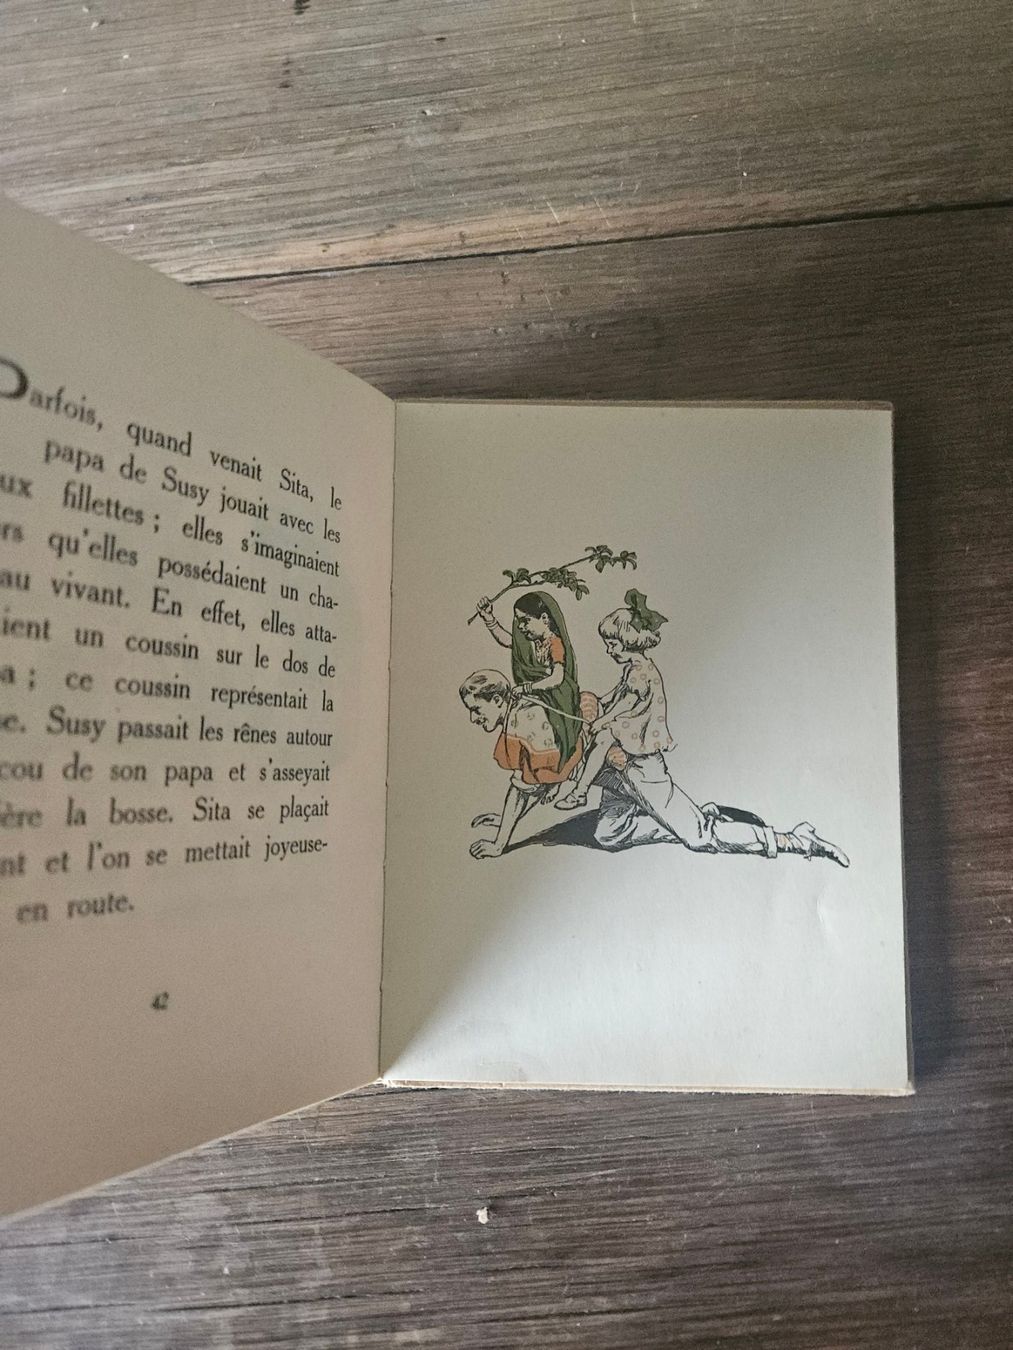 Parfois, quand venait Sita, le
papa de Susy jouait avec les
ux fillettes ; elles s'imaginaient
rs qu'elles possédaient un cha-
au vivant. En effet, elles atta-
ient un coussin sur le dos de
a ; ce coussin représentait la
e. Susy passait les rênes autour
cou de son papa et s'asseyait
ère la bosse. Sita se plaçait
nt et l'on se mettait joyeuse-
en route.
42